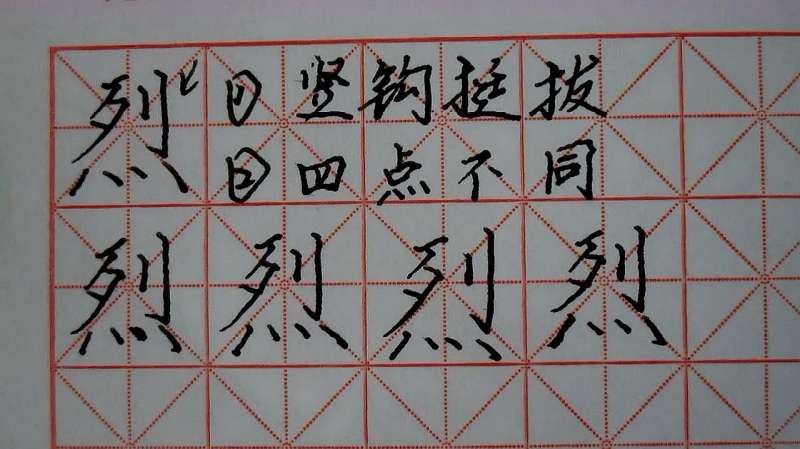 烈 ①竖钩挺拔
②四点不同
烈 烈 烈 烈